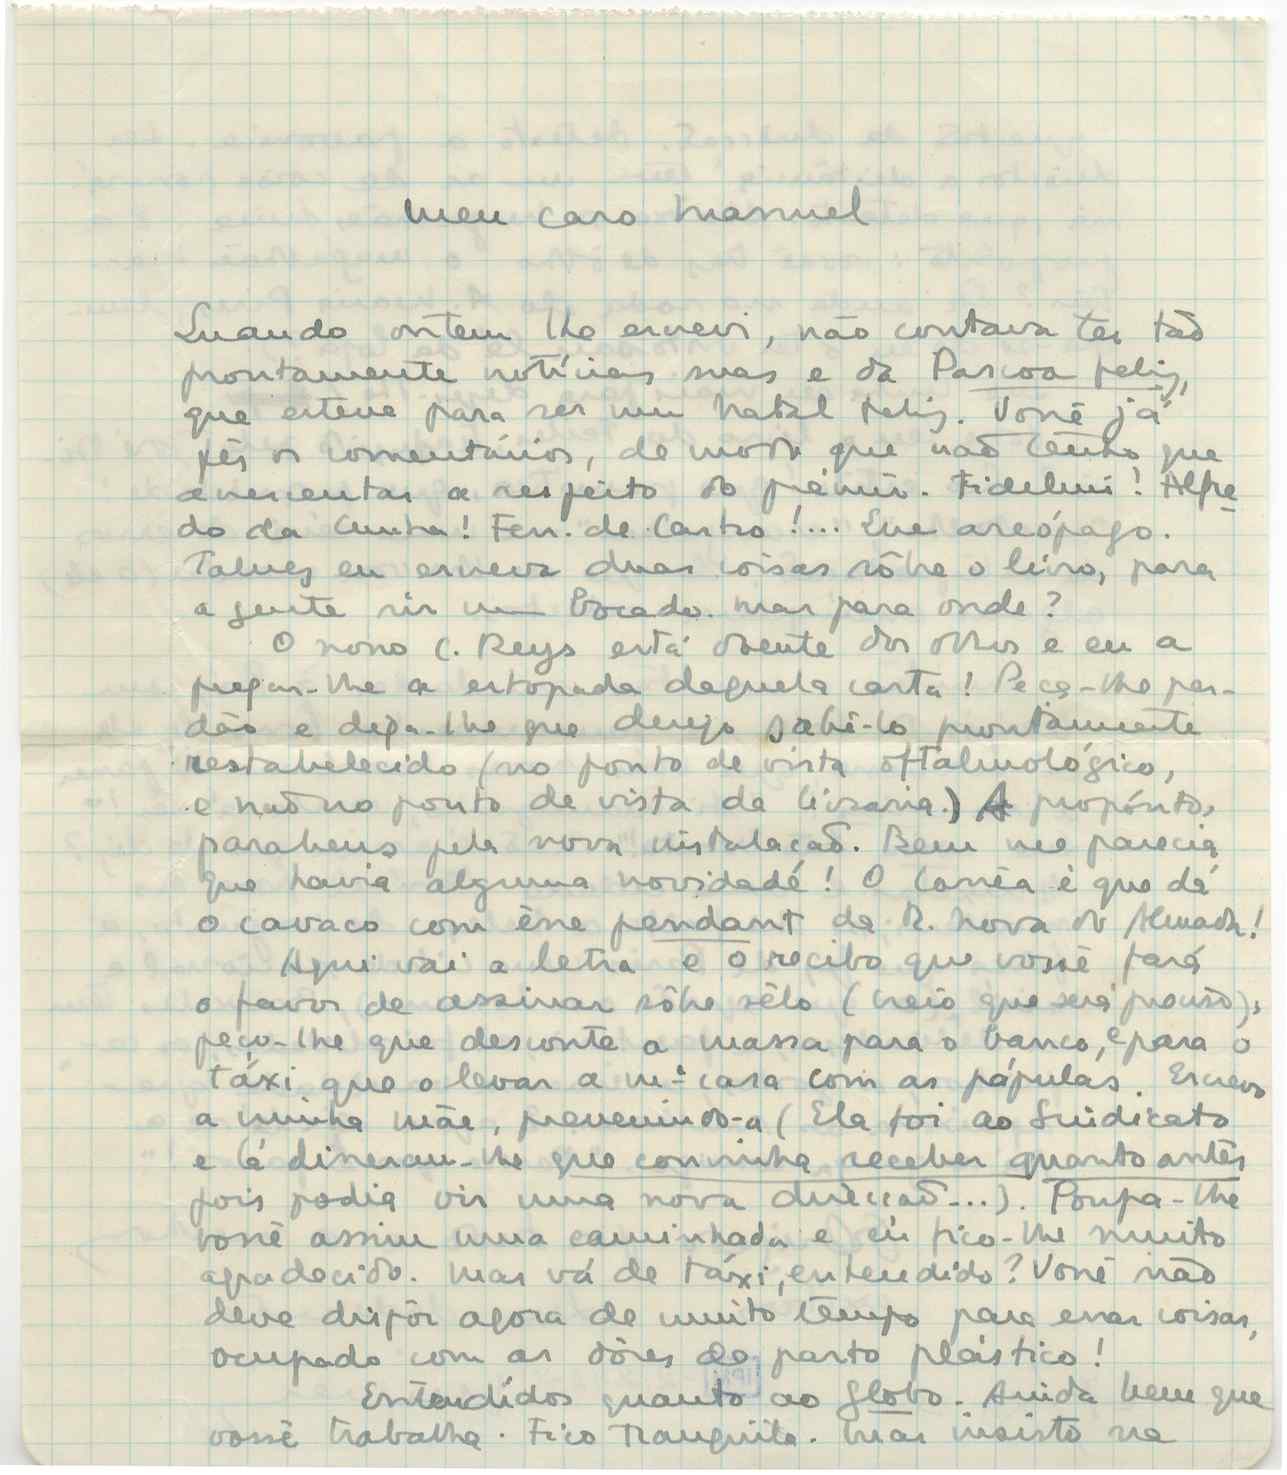 Meu caro Manuel
Quando ontem lhe escrevi, não contava ter tão
prontamente notícias suas e da Pascoa feliz,
que esteve para ser um Natal feliz. Você já
fês os comentários, de modo que não tenho que
acrescentar a respeito do prémio. Fidelino! Alfre-
do da Cunha! Ferr. de Castro!... Que areópago.
Talvez eu escreva duas coisas sôbre o livro, para
a gente rir um bocado. Mas para onde?
O nosso C. Reys está doente dos olhos e eu a
pregar-lhe a estopada daquela carta! Peça-lhe per-
dão e diga-lhe que desejo sabê-lo prontamente
restabelecido (no ponto de vista oftalmológico,
e não no ponto de vista da livraria.) A propósito,
parabens pela nova instalacão. Bem me parecia
que havia alguma novidade! O Corrêa é que dá
o cavaco com êsse pendant da R. Nova do Almada!
Aqui vai a letra e o recibo que você fará
o favor de assinar sôbre sêlo (creio que será preciso),
peço-lhe que desconte a massa para o banco, e para o
táxi que o levar a m.ª casa com as pápulas. Escrevo
a minha mãe, prevenindo-a (Ela foi ao Sindicato
e lá disseram-lhe que convinha receber quanto antes
pois podia vir uma nova direccão...). Poupa-lhe
você assim uma caminhada e eu fico-lhe muito
agradecido. Mas vá de táxi, entendido? Você não
deve dispôr agora de muito tempo para essas coisas,
ocupado com as dôres do parto plástico!
Entendidos quanto ao Globo. Ainda bem que
você trabalha. Fico tranquilo. Mas insisto na